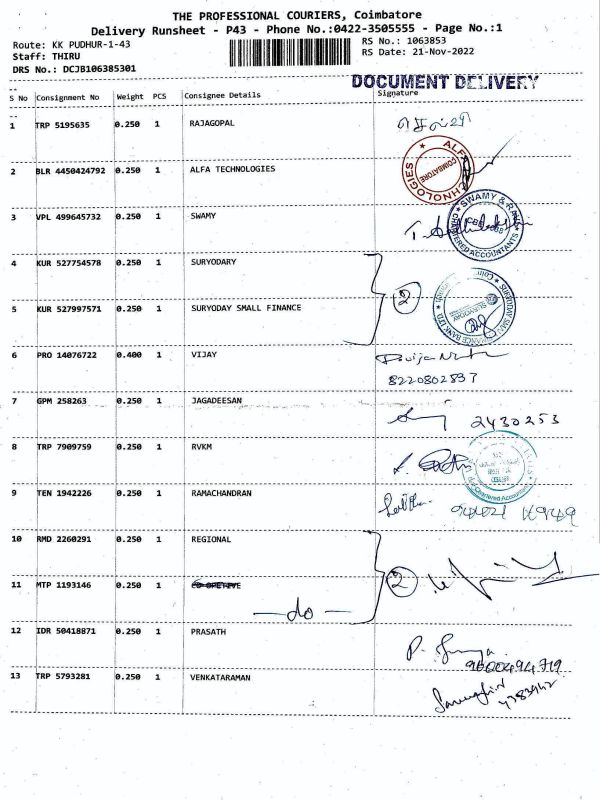 THE PROFESSIONAL COURIERS, Coimbatore
Delivery Runsheet - P43 - Phone No.:0422-3505555 - Page No.:1
Route: KK PUDHUR-1-43 RS No.: 1063853
Staff: THIRU RS Date: 21-Nov-2022
DRS No.: DCJB106385301
DOCUMENT DELIVERY
S No Consignment No Weight PCS Consignee Details Signature
1 TRP 5195635 0.250 1 RAJAGOPAL
2 BLR 4450424792 0.250 1 ALFA TECHNOLOGIES
ALFA TECHNOLOGIES COIMBATORE
3 VPL 499645732 0.250 1 SWAMY
SWAMY & CHARTERED ACCOUNTANTS
4 KUR 527754578 0.250 1 SURYODARY
2
5 KUR 527997571 0.250 1 SURYODAY SMALL FINANCE
6 PRO 14076722 0.400 1 VIJAY
8220802837
7 GPM 258263 0.250 1 JAGADEESAN
2430253
8 TRP 7909759 0.250 1 RVKM
Chartered Accountants
9 TEN 1942226 0.250 1 RAMACHANDRAN
10 RMD 2260291 0.250 1 REGIONAL
11 MTP 1193146 0.250 1
2
—do—
12 IDR 50418871 0.250 1 PRASATH
9600494719
13 TRP 5793281 0.250 1 VENKATARAMAN